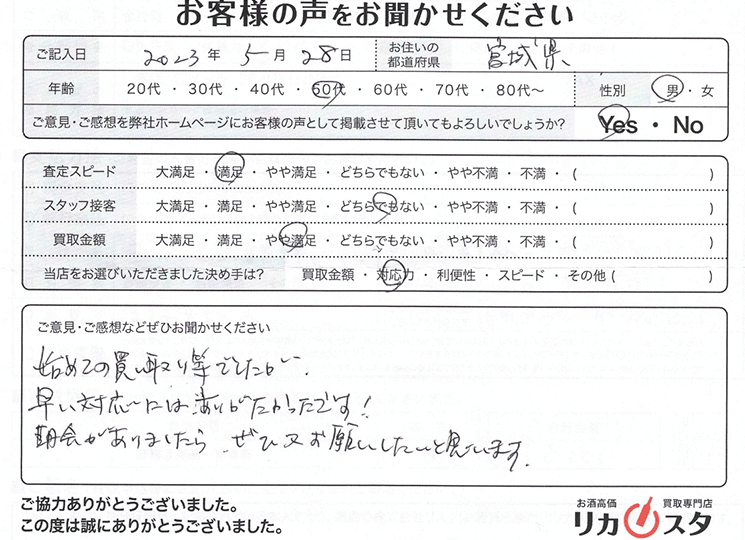 お客様の声をお聞かせください
ご記入日 2023年 5月 28日 お住いの都道府県 宮城県
年齢 20代 ・ 30代 ・ 40代 ・ 50代 ・ 60代 ・ 70代 ・ 80代〜 性別 男 ・ 女
ご意見・ご感想を弊社ホームページにお客様の声として掲載させて頂いてもよろしいでしょうか? Yes ・ No
査定スピード 大満足 ・ 満足 ・ やや満足 ・ どちらでもない ・ やや不満 ・ 不満 ・ ( )
スタッフ接客 大満足 ・ 満足 ・ やや満足 ・ どちらでもない ・ やや不満 ・ 不満 ・ ( )
買取金額 大満足 ・ 満足 ・ やや満足 ・ どちらでもない ・ やや不満 ・ 不満 ・ ( )
当店をお選びいただきました決め手は? 買取金額 ・ 対応力 ・ 利便性 ・ スピード ・ その他 ( )
ご意見・ご感想などぜひお聞かせください
始めての買い取り等でしたがい、
早い対応には ありがたかったです!
期会がありましたら ぜひ又お願いしたいと思います。
ご協力ありがとうございました。
この度は誠にありがとうございました。
お酒高価 買取専門店
リカスタ